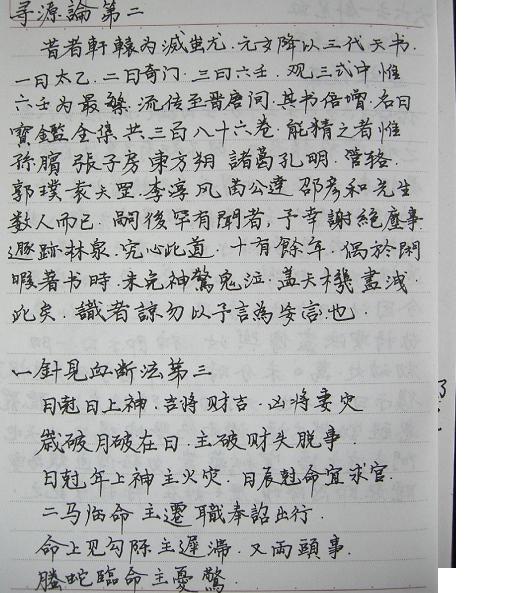 寻源論第二
昔者軒轅为滅蚩尤.元女降以三代天书.
一曰太乙.二曰奇门.三曰六壬.观三式中惟
六壬为最繁.流传至晋唐间.其书倍增.名曰
寳鑑全集共三百八十六卷.能精之者惟
孫臏張子房東方朔諸葛孔明.管辂.
郭璞袁天罡.李淳风苗公達邵彦和先生
数人而已.嗣後罕有聞者,予幸謝絕塵事
遯跡林泉.究心此道.十有餘年.偶於閒
暇著书時.未完神驚鬼泣.盖天機盡洩.
此矣.識者諒勿以予言為妄言.也.
一針見血断法第三
日尅日上神.吉將财吉.凶將妻灾
歲破月破在日.主破财失脱事.
日尅年上神主火灾.日辰尅命宜求官.
二马临命主遷職奉詔出行.
命上见勾陈主遲滞.又兩頭事.
螣蛇臨命主憂驚.